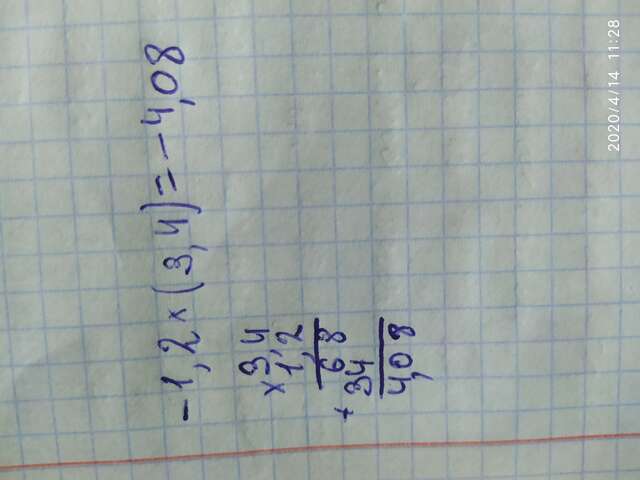 -1,2 × (3,4) = -4,08
× 3,4
1,2
6 8
+ 3 4
4,08
2020/4/14 11:28